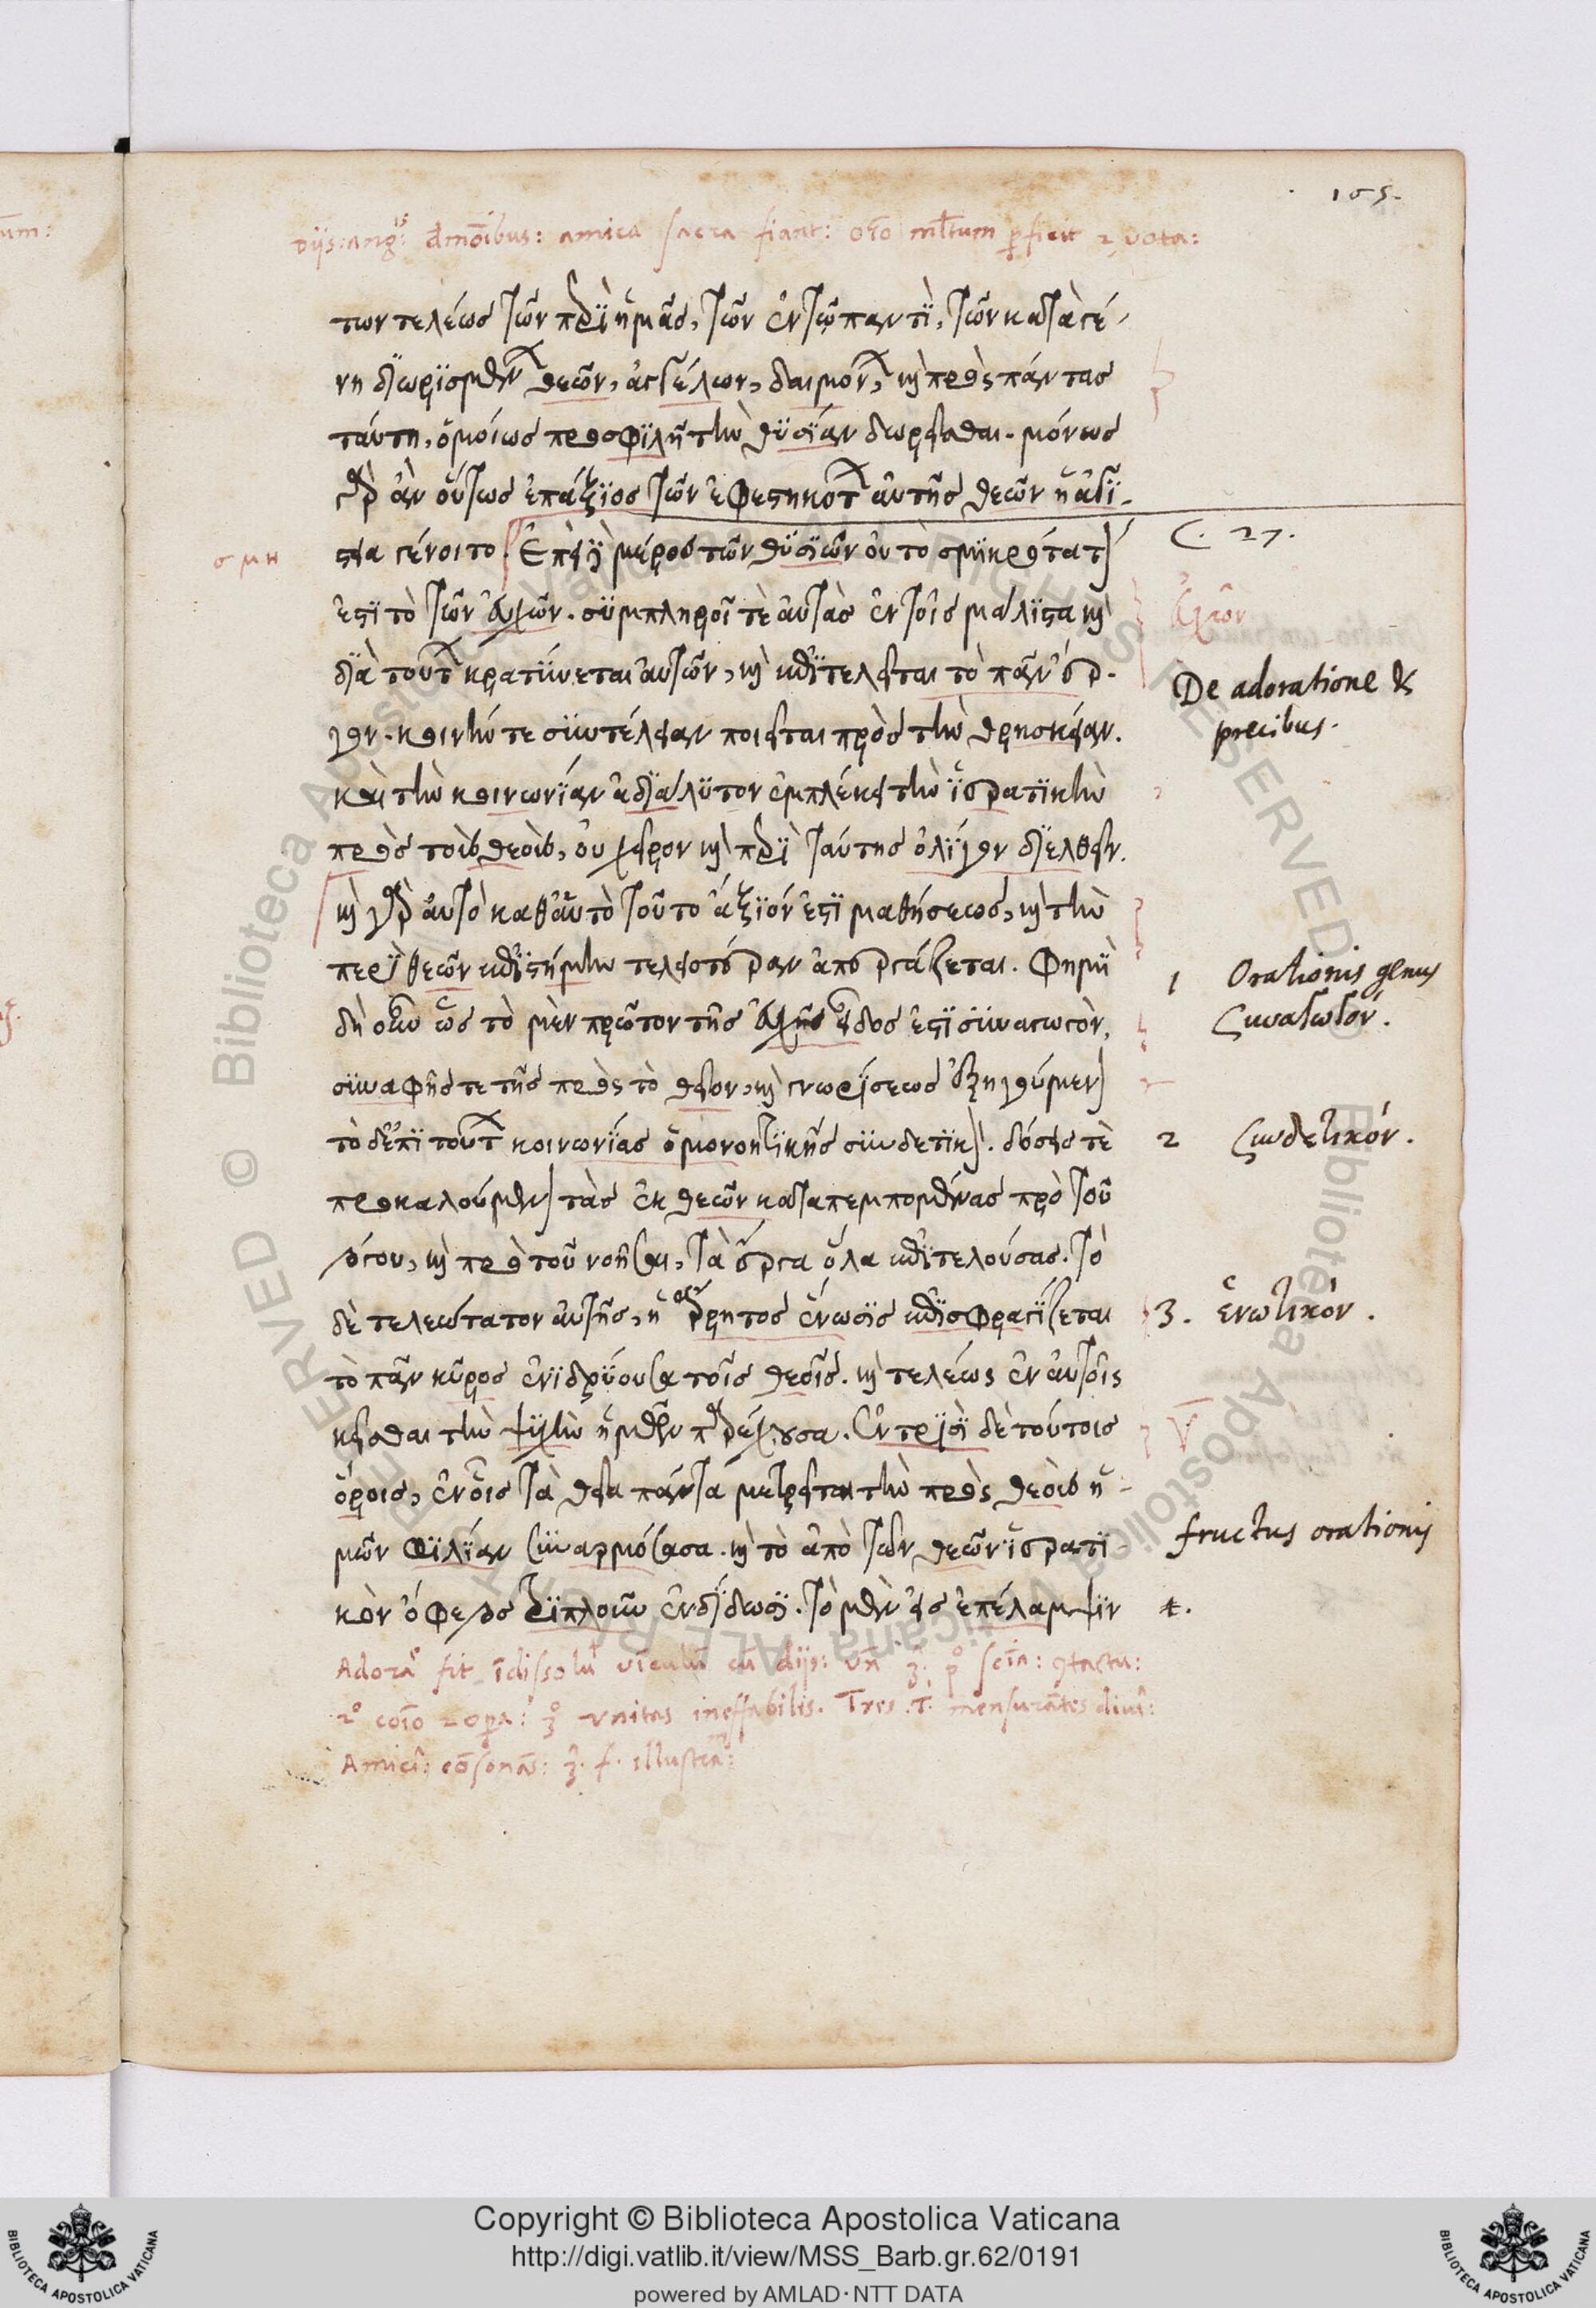 165.
Diis: ang: dmonibus: amica sacra fiant: oro mltum pficit 2 vota:
των τελέως τῶν περὶ ἡμᾶς, τῶν ἐν τῷ παντὶ, τῶν κατὰ γέ-
νη διωρισμένων θεῶν, ἀγγέλων, δαιμόνων, καὶ πρὸς πάντας
ταύτη, ὁμοίως προσφιλῆ τὴν θυσίαν δωρεῖσθαι. μόνως
γὰρ ἂν οὕτως ἐπάξιος τῶν ἐφεστηκότων αὐτῆς θεῶν ἡ ἁγι-
στεία γένοιτο. Ἐπεὶ μέρος τῶν θυσιῶν οὐ τὸ σμικρότατον
C. 27.
σμη
ἐστὶ τὸ τῶν εὐχῶν. συμπληροῖ τὲ αὐτὰς ἐν τοῖς μάλιστα καὶ
εὐχῶν
διὰ τούτων κρατύνεται αὐτῶν, καὶ ἐπιτελεῖται τὸ πᾶν ἔρ-
De adoratione &
precibus.
γον. κοινήν τε συντέλειαν ποιεῖται πρὸς τὴν θρησκείαν.
καὶ τὴν κοινωνίαν ἀδιάλυτον ἐμπλέκει τὴν ἱερατικὴν
πρὸς τοὺς θεοὺς, οὐ χεῖρον καὶ περὶ ταύτης ὀλίγον διελθεῖν.
καὶ γὰρ αὐτὸ καθ' αὑτὸ τοῦτο ἄξιόν ἐστι μαθήσεως, καὶ τὴν
περὶ θεῶν ἐπιστήμην τελειοτέραν ἀπεργάζεται. Φημὶ
1 Orationis genus
συναγωγόν.
δὴ οὖν ὡς τὸ μὲν πρῶτον τῆς εὐχῆς εἶδος ἐστὶ συναγωγὸν,
συναφῆς τε τῆς πρὸς τὸ θεῖον, καὶ γνωρίσεως ἐξηγούμενον
τὸ δ' ἐπὶ τούτων κοινωνίας ὁμονοητικῆς συνδετικὸν. δόσεις τὲ
2 συνδετικόν.
προκαλούμενον τὰς ἐκ θεῶν καταπεμπομένας πρὸ τοῦ
λόγου, καὶ πρὸ τοῦ νοῆσαι, τὰ ἔργα ὅλα ἐπιτελούσας. τὸ
δὲ τελεώτατον αὐτῆς, ἡ ἄρρητος ἕνωσις ἐπισφραγίζεται
3. ἑνωτικόν.
τὸ πᾶν κῦρος ἐνιδρύουσα τοῖς θεοῖς. καὶ τελέως ἐν αὐτοῖς
κεῖσθαι τὴν ψυχὴν ἡμῶν παρέχουσα. Ἐν τρισὶ δὲ τούτοις
ὅροις, ἐν οἷς τὰ θεῖα πάντα μετρεῖται τὴν πρὸς θεοὺς ἡ-
μῶν φιλίαν συναρμόσασα. καὶ τὸ ἀπὸ τῶν θεῶν ἱερατι-
fructus orationis
κὸν ὄφελος τριπλοῦν ἐνδίδωσι. τὸ μὲν εἰς ἐπέλαμψιν
Adora fit idissolu viculu cu diis: vn 3: p° scia: 9tactu:
2° coio 2 opa: 3° vnitas ineffabilis. Tres .T. mensurates diui:
Amici: cosona: 3. f. illustra:
Copyright © Biblioteca Apostolica Vaticana
http://digi.vatlib.it/view/MSS_Barb.gr.62/0191
powered by AMLAD·NTT DATA